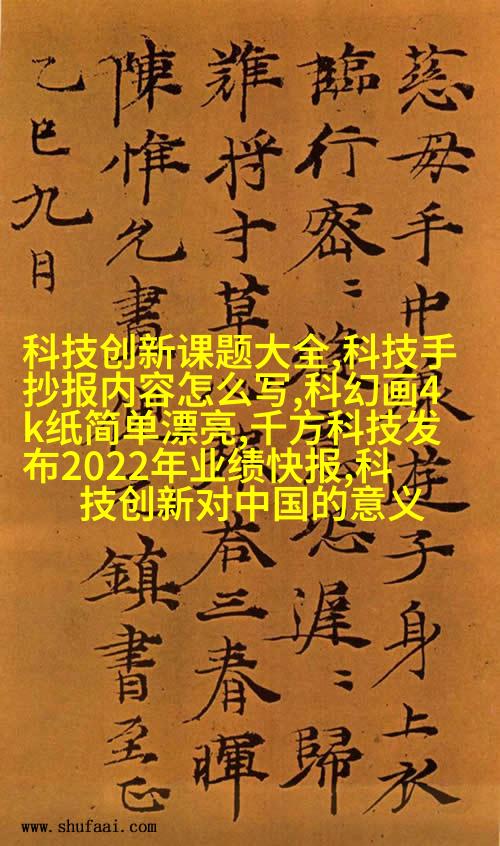 慈母手中線遊子身上衣
臨行密〻縫恐遲〻歸
難将寸草報荅三春暉
陳惟允書鎮書至正
乙巳九月
科技创新课题大全,科技手
抄报内容怎么写,科幻画4
k纸简单漂亮,千方科技发
布2022年业绩快报,科
技创新对中国的意义
www.shufaai.com